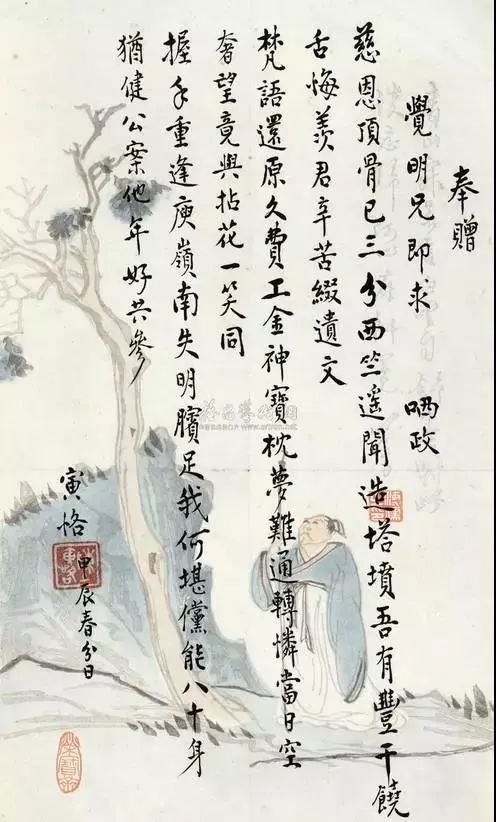 奉贈
覺明兄即求　哂政
慈恩頂骨已三分西竺遥聞造塔墳吾有豐干饒
舌悔羡君辛苦綴遺文
梵語還原久費工金神寶枕夢難通轉憐當日空
奢望竟與拈花一笑同
握手重逢庾嶺南失明臏足我何堪儻能八十身
猶健公案他年好共參
寅恪
甲辰春分日
榮寶齋